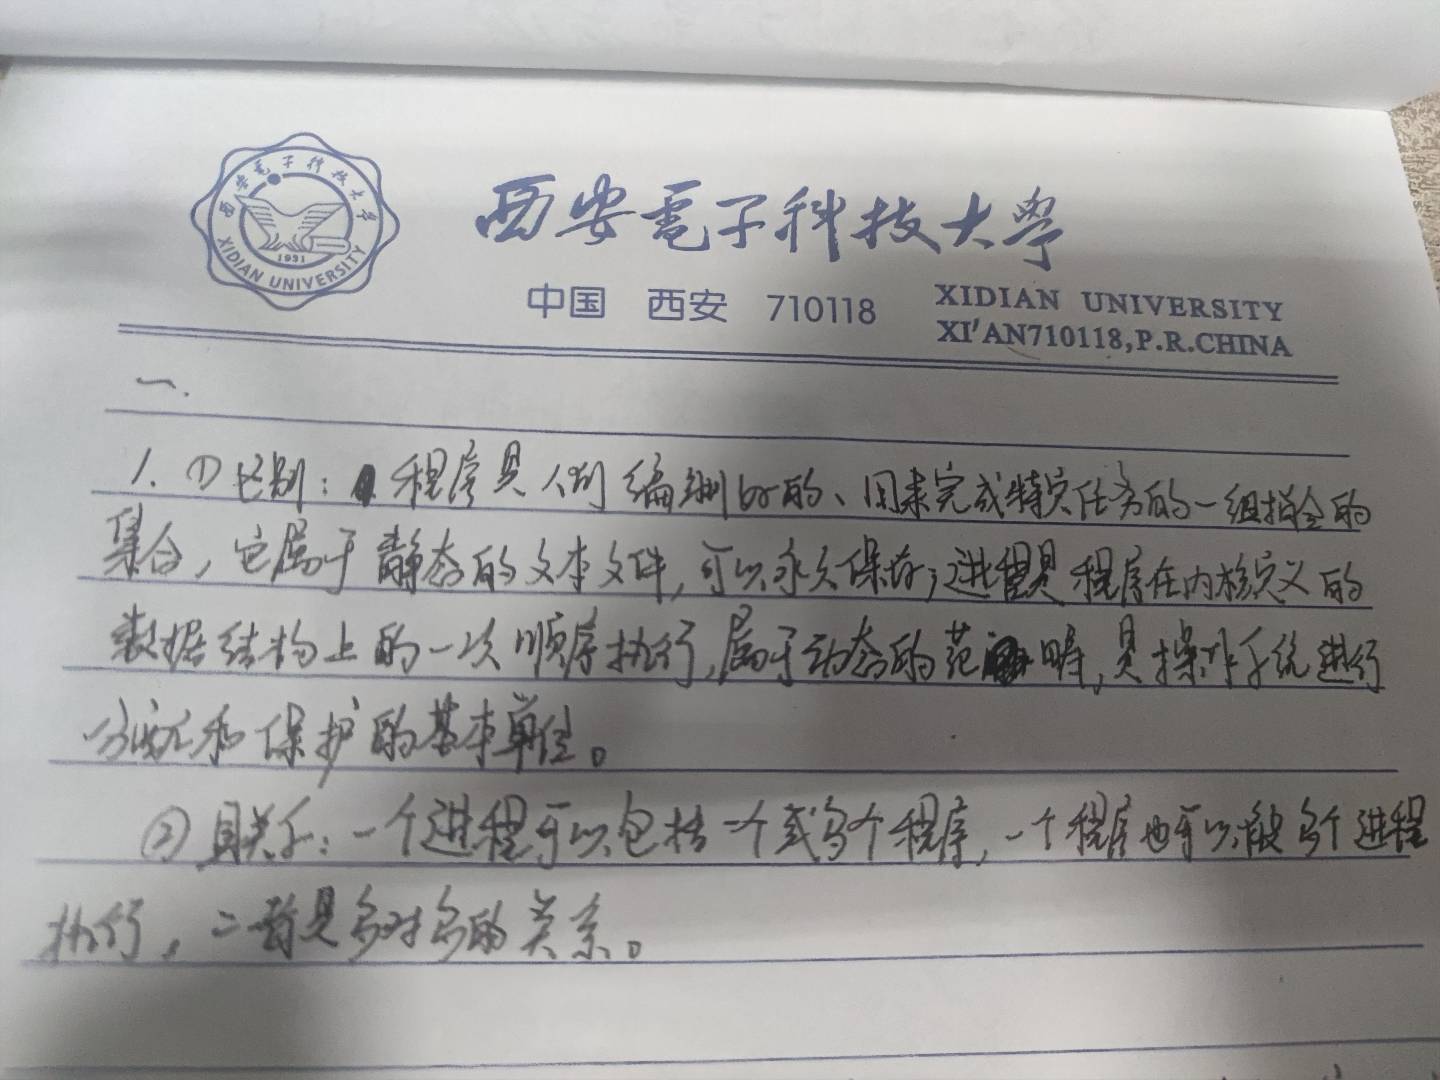 西安電子科技大學
XIDIAN UNIVERSITY
1931
西安電子科技大學
中国 西安 710118
XIDIAN UNIVERSITY
XI'AN710118,P.R.CHINA
一.
1. ①区别: 程序是人们编制好的、用来完成特定任务的一组指令的
集合，它属于静态的文本文件，可以永久保存；进程是程序在内核定义的
数据结构上的一次顺序执行，属于动态的范畴，是操作系统进行
分配和保护的基本单位。
② 关系：一个进程可以包括一个或多个程序，一个程序也可以被多个进程
执行，二者是多对多的关系。